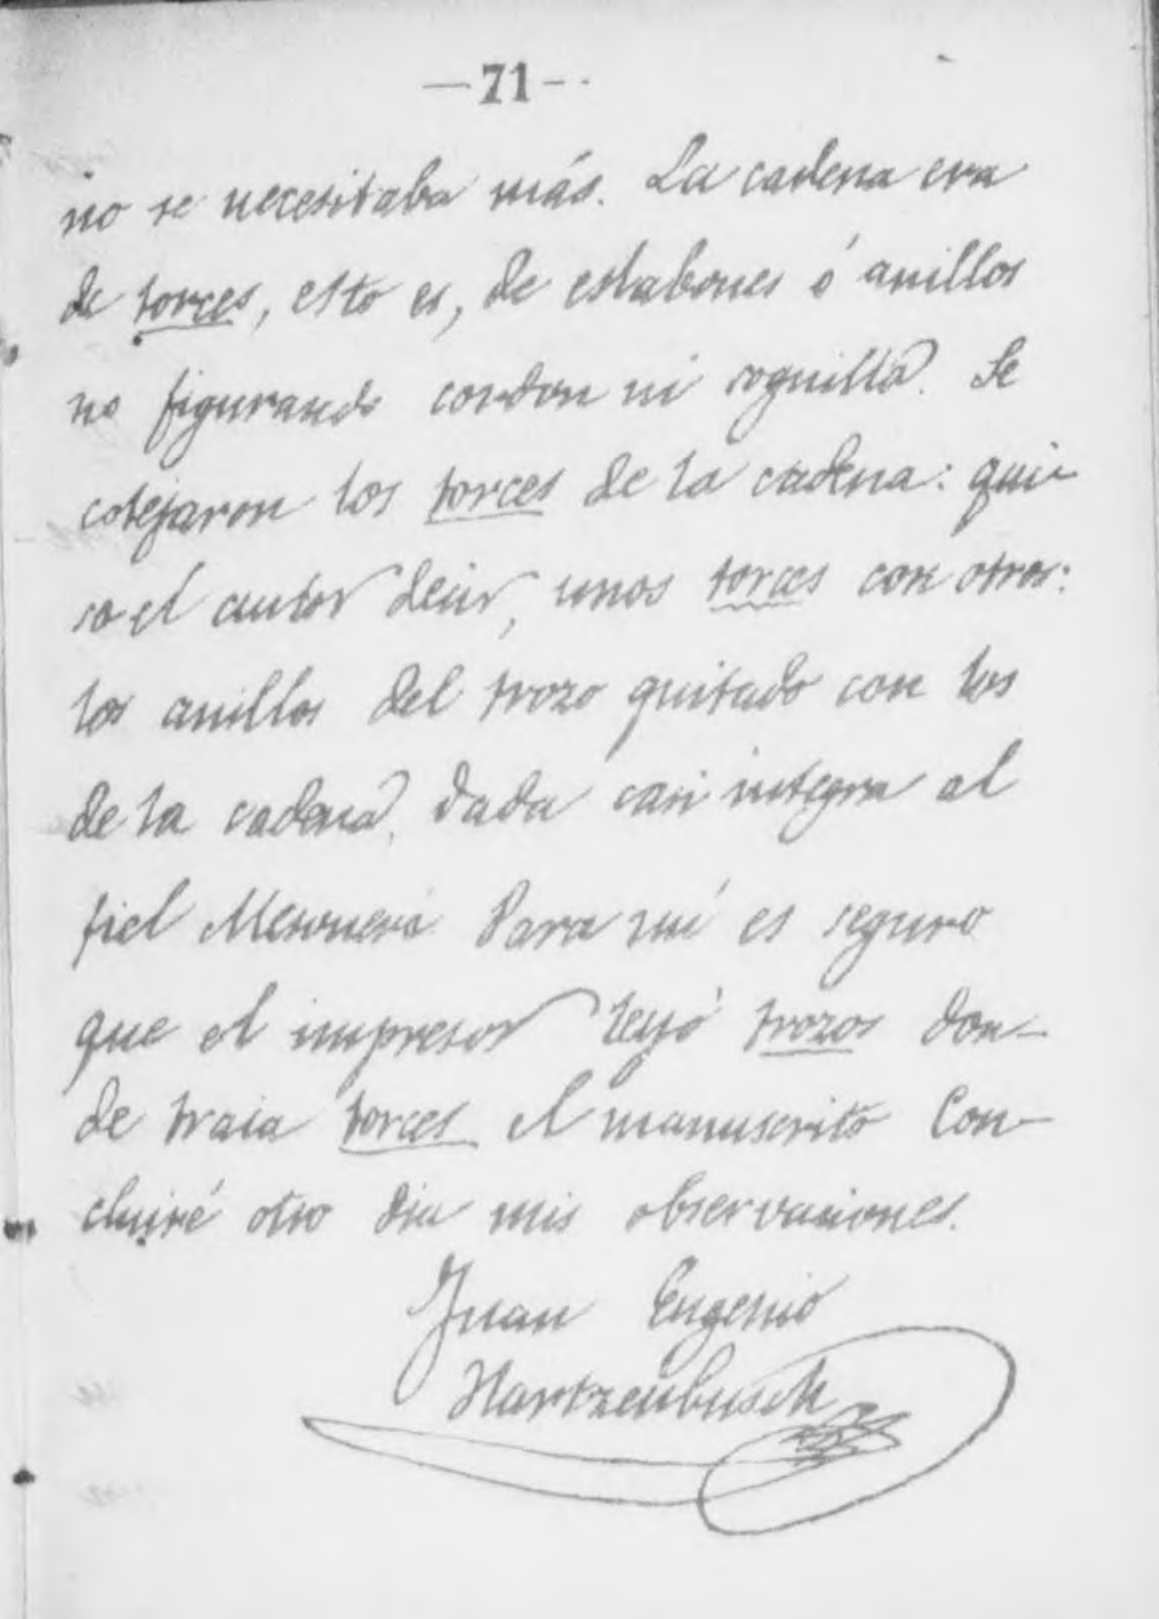 —71—
no se necesitaba más. La cadena era
de torces, esto es, de eslabones ó anillos
no figurando cordon ni soguilla. Se
cotejaron los torces de la cadena: qui-
so el autor decir, unos torces con otros:
los anillos del trozo quitado con los
de la cadena, dada casi integra al
fiel Mesonero. Para mí es seguro
que el impresor leyó trozos don-
de traia torces el manuscrito Con-
cluiré otro dia mis observaciones.
Juan Eugenio
Hartzenbusch